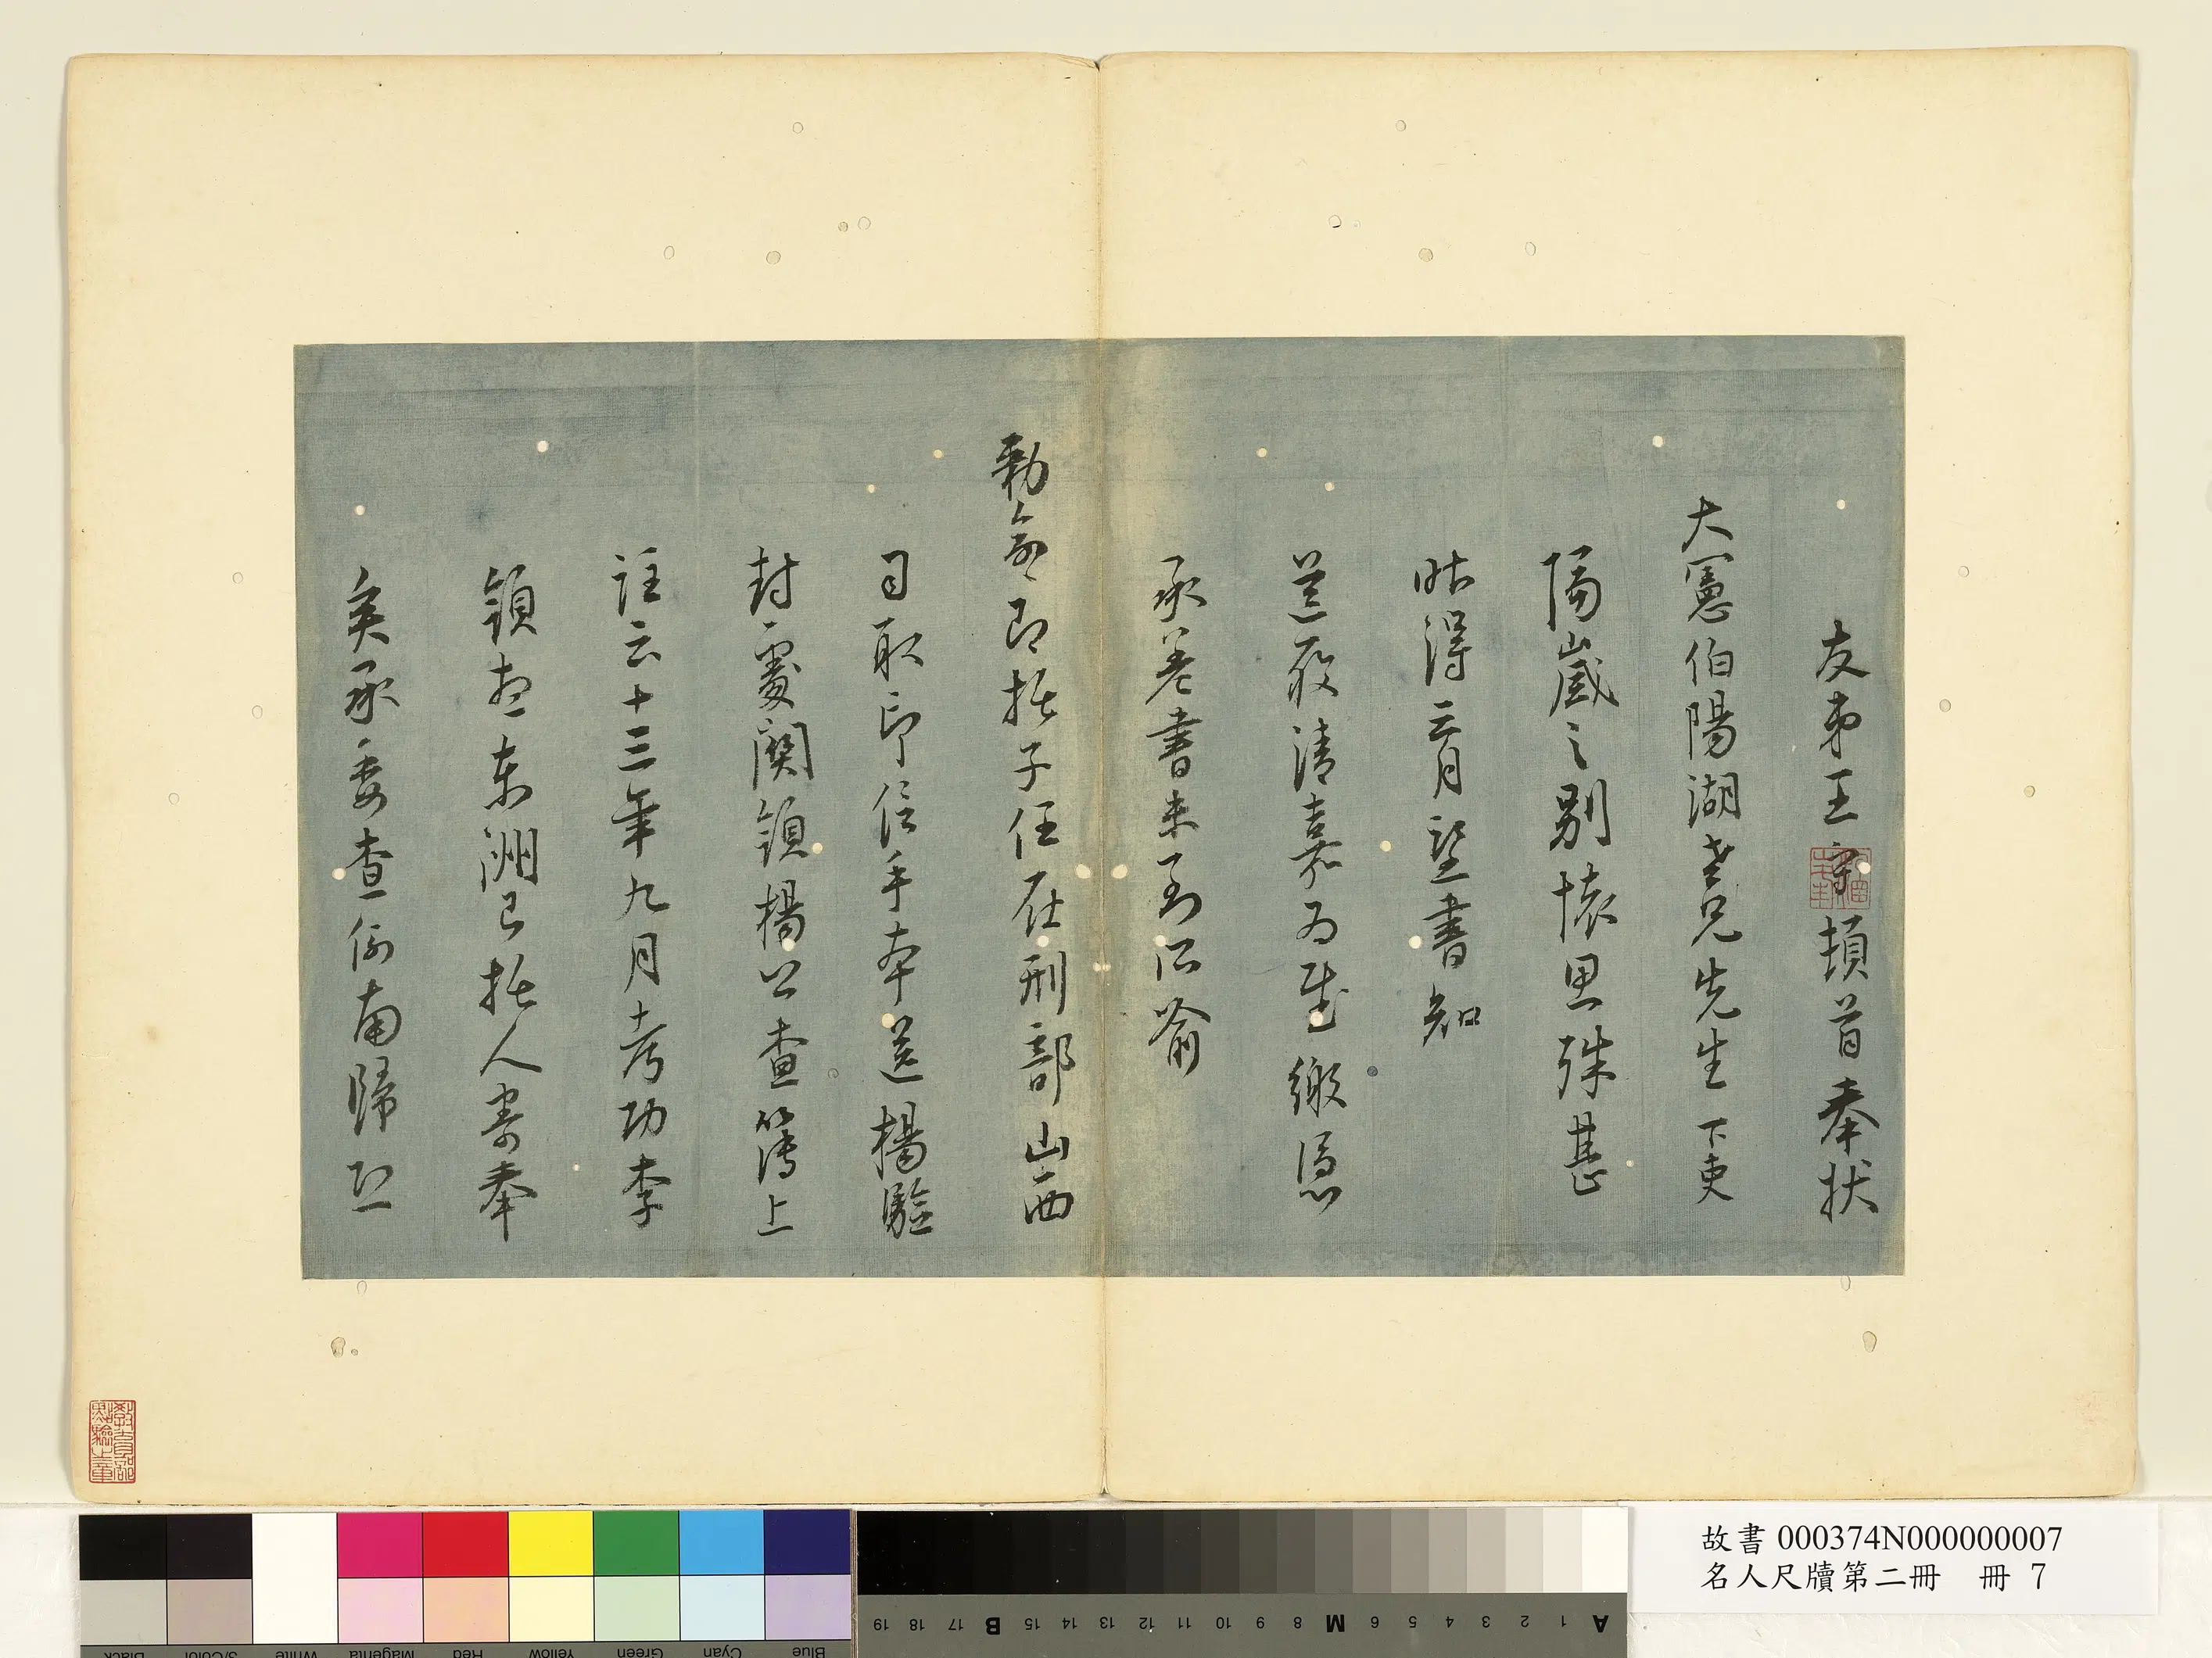 友弟王守頓首奉狀
大憲伯陽湖老兄先生下吏
隔歲之別懷思殊甚
昨得三月望書知
道履清嘉為慰繳憑
承差書未到所喻
勅命即托子任在刑部山西
司取印信手本送楊驗
封處関領楊公查簿上
註云十三年九月考功李
領去東洲已托人寄奉
矣承委查俸南歸
故書 000374N000000007
名人尺牘第二冊 冊 7
Black
3/Color
White
Magenta
Red
Yellow
Green
Cyan
Blue
A 1 2 3 4 5 6 M 8 9 10 11 12 13 14 15 B 17 18 19